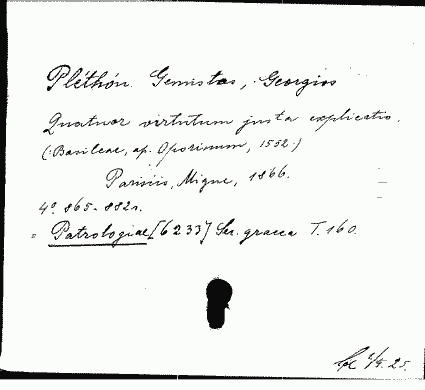 Pléthón Gemistos, Georgios
Quatuor virtutum justa explicatio.
(Basileae, ap. Oporinum, 1552.)
Parisiis, Migne, 1866.
4º. 865-882 r.
= Patrologiae [6233] Ser. graeca T. 160.